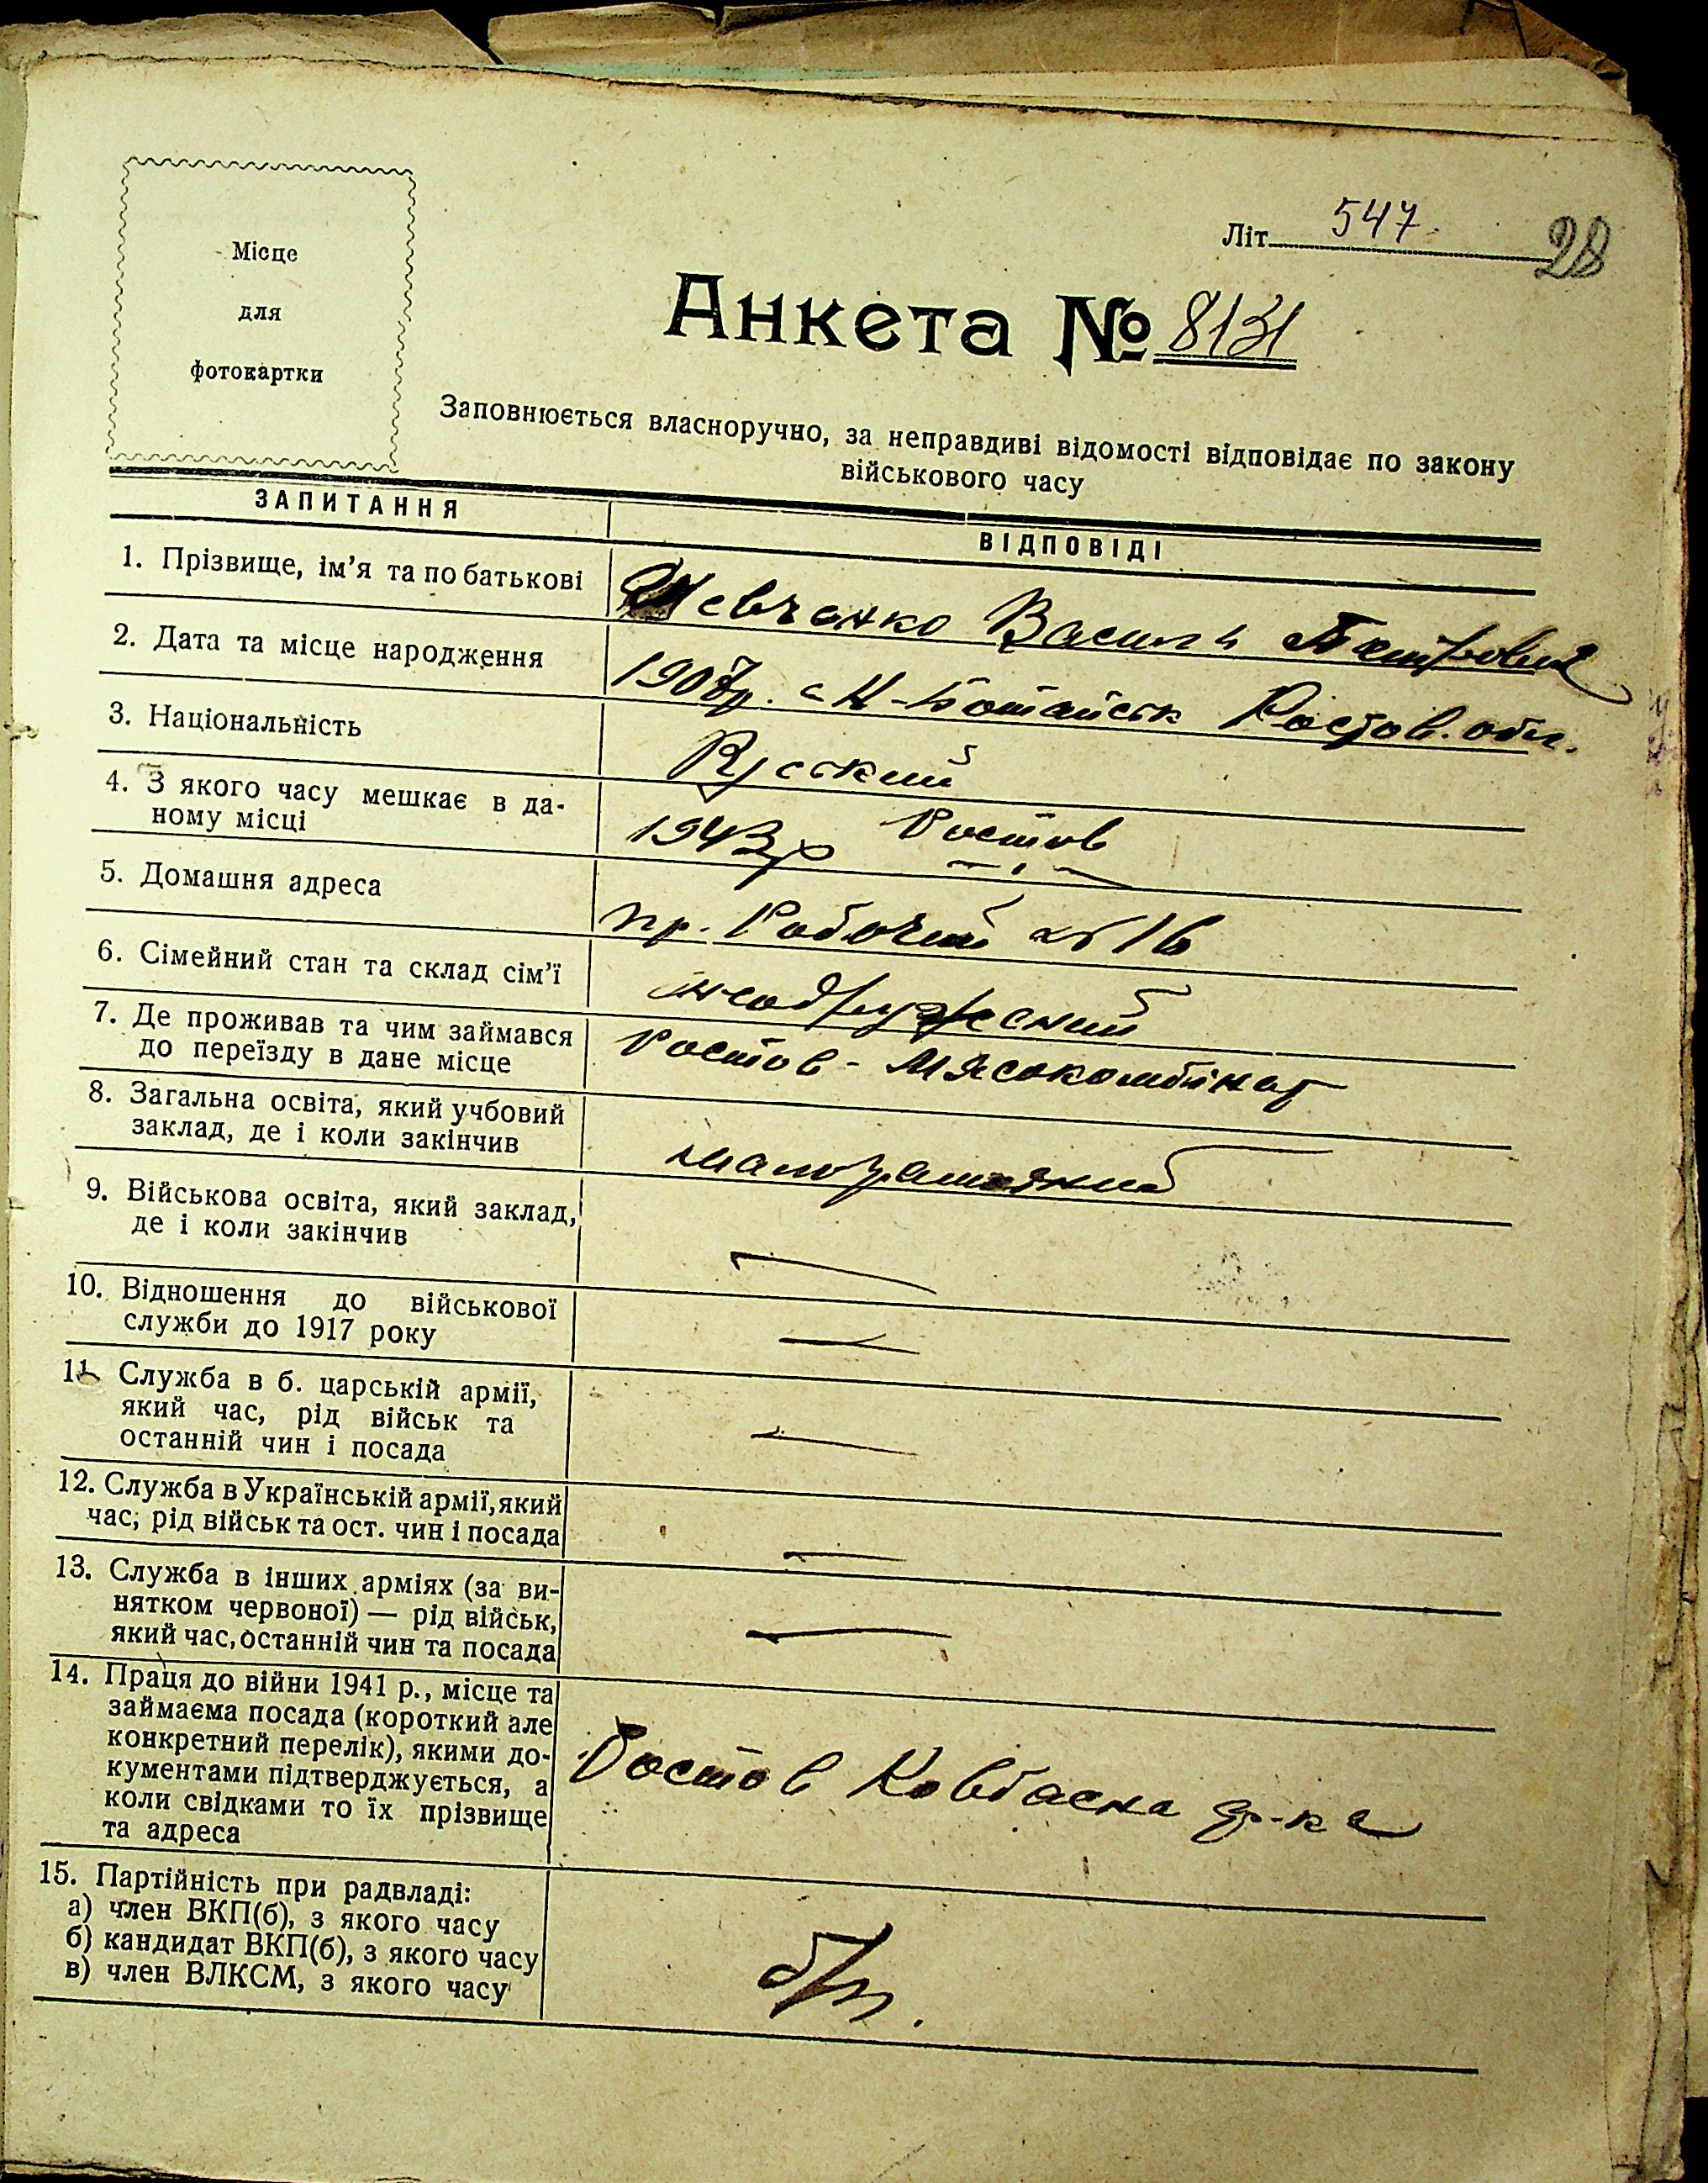 Місце
для
фотокартки
Літ 547.
28
Анкета № 8131
Заповнюється власноручно, за неправдиві відомості відповідає по закону
військового часу
ЗАПИТАННЯ
ВІДПОВІДІ
1. Прізвище, ім'я та по батькові
Шевченко Василь Петрович
2. Дата та місце народження
1907р. с Н-Ботайськ Ростов. обл.
3. Національність
Руский
4. З якого часу мешкає в да-
ному місці
1943р Ростов
5. Домашня адреса
пр. Робочий 16
6. Сімейний стан та склад сім'ї
неодружений
7. Де проживав та чим займався
до переїзду в дане місце
Ростов - Мясокомбінат
8. Загальна освіта, який учбовий
заклад, де і коли закінчив
малограмотний
9. Військова освіта, який заклад,
де і коли закінчив
—
10. Відношення до військової
служби до 1917 року
—
11. Служба в б. царській армії,
який час, рід військ та
останній чин і посада
—
12. Служба в Українській армії, який
час, рід військ та ост. чин і посада
—
13. Служба в інших арміях (за ви-
нятком червоної) — рід військ,
який час, останній чин та посада
—
14. Праця до війни 1941 р., місце та
займаєма посада (короткий але
конкретний перелік), якими до-
кументами підтверджується, а
коли свідками то їх прізвище
та адреса
Ростов Ковбасна ф-ка
15. Партійність при радвладі:
а) член ВКП(б), з якого часу
б) кандидат ВКП(б), з якого часу
в) член ВЛКСМ, з якого часу
б/п.